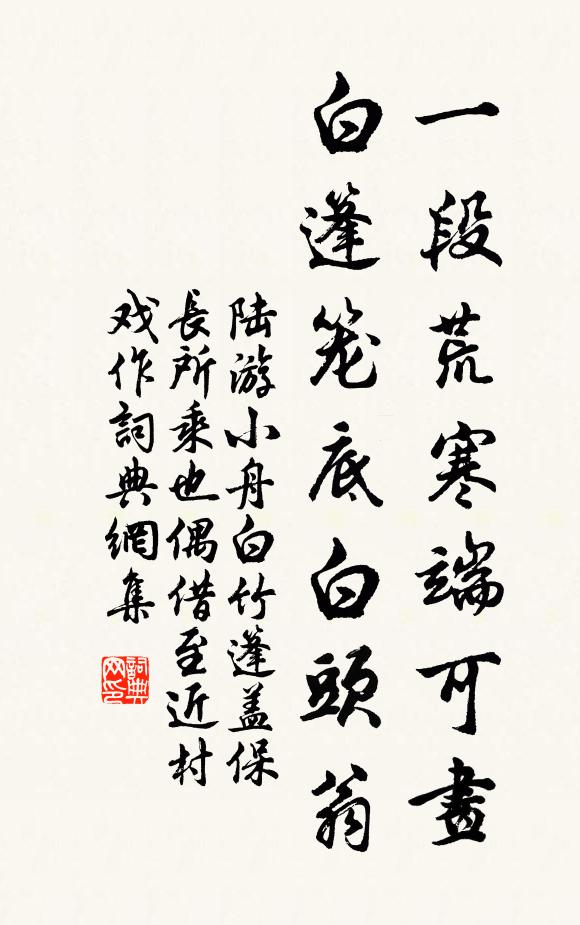 一段荒寒端可畫
白篷笼底白頭翁
陆游小舟白竹篷盖保
長所乘也偶借至近村
戏作詞典網集
詞典
网印